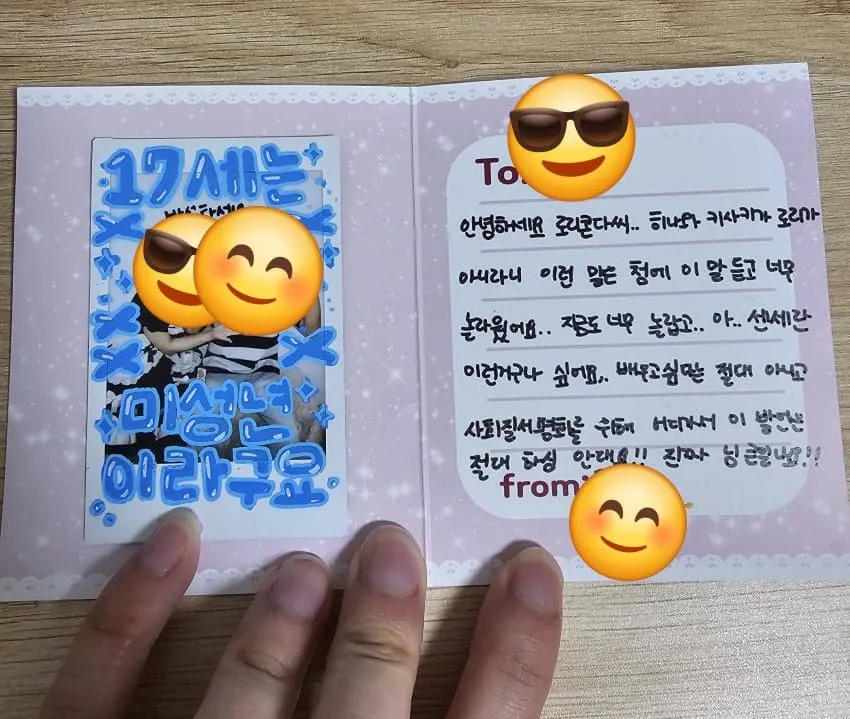 17세는
미성년
이라구요
To.
안녕하세요 로리콘다씨.. 히나와 키사키가 로리가
아니라니 이런 말은 첨에 이 말 듣고 너무
놀라웠어요.. 지금도 너무 놀랍고.. 아.. 센세란
이런거구나 싶어요,. 배우고싶다는 절대 아니고
사회질서평화를 위해 어디가서 이 발언은
절대 하심 안대요!! 진짜 님 큰일나요!!
from